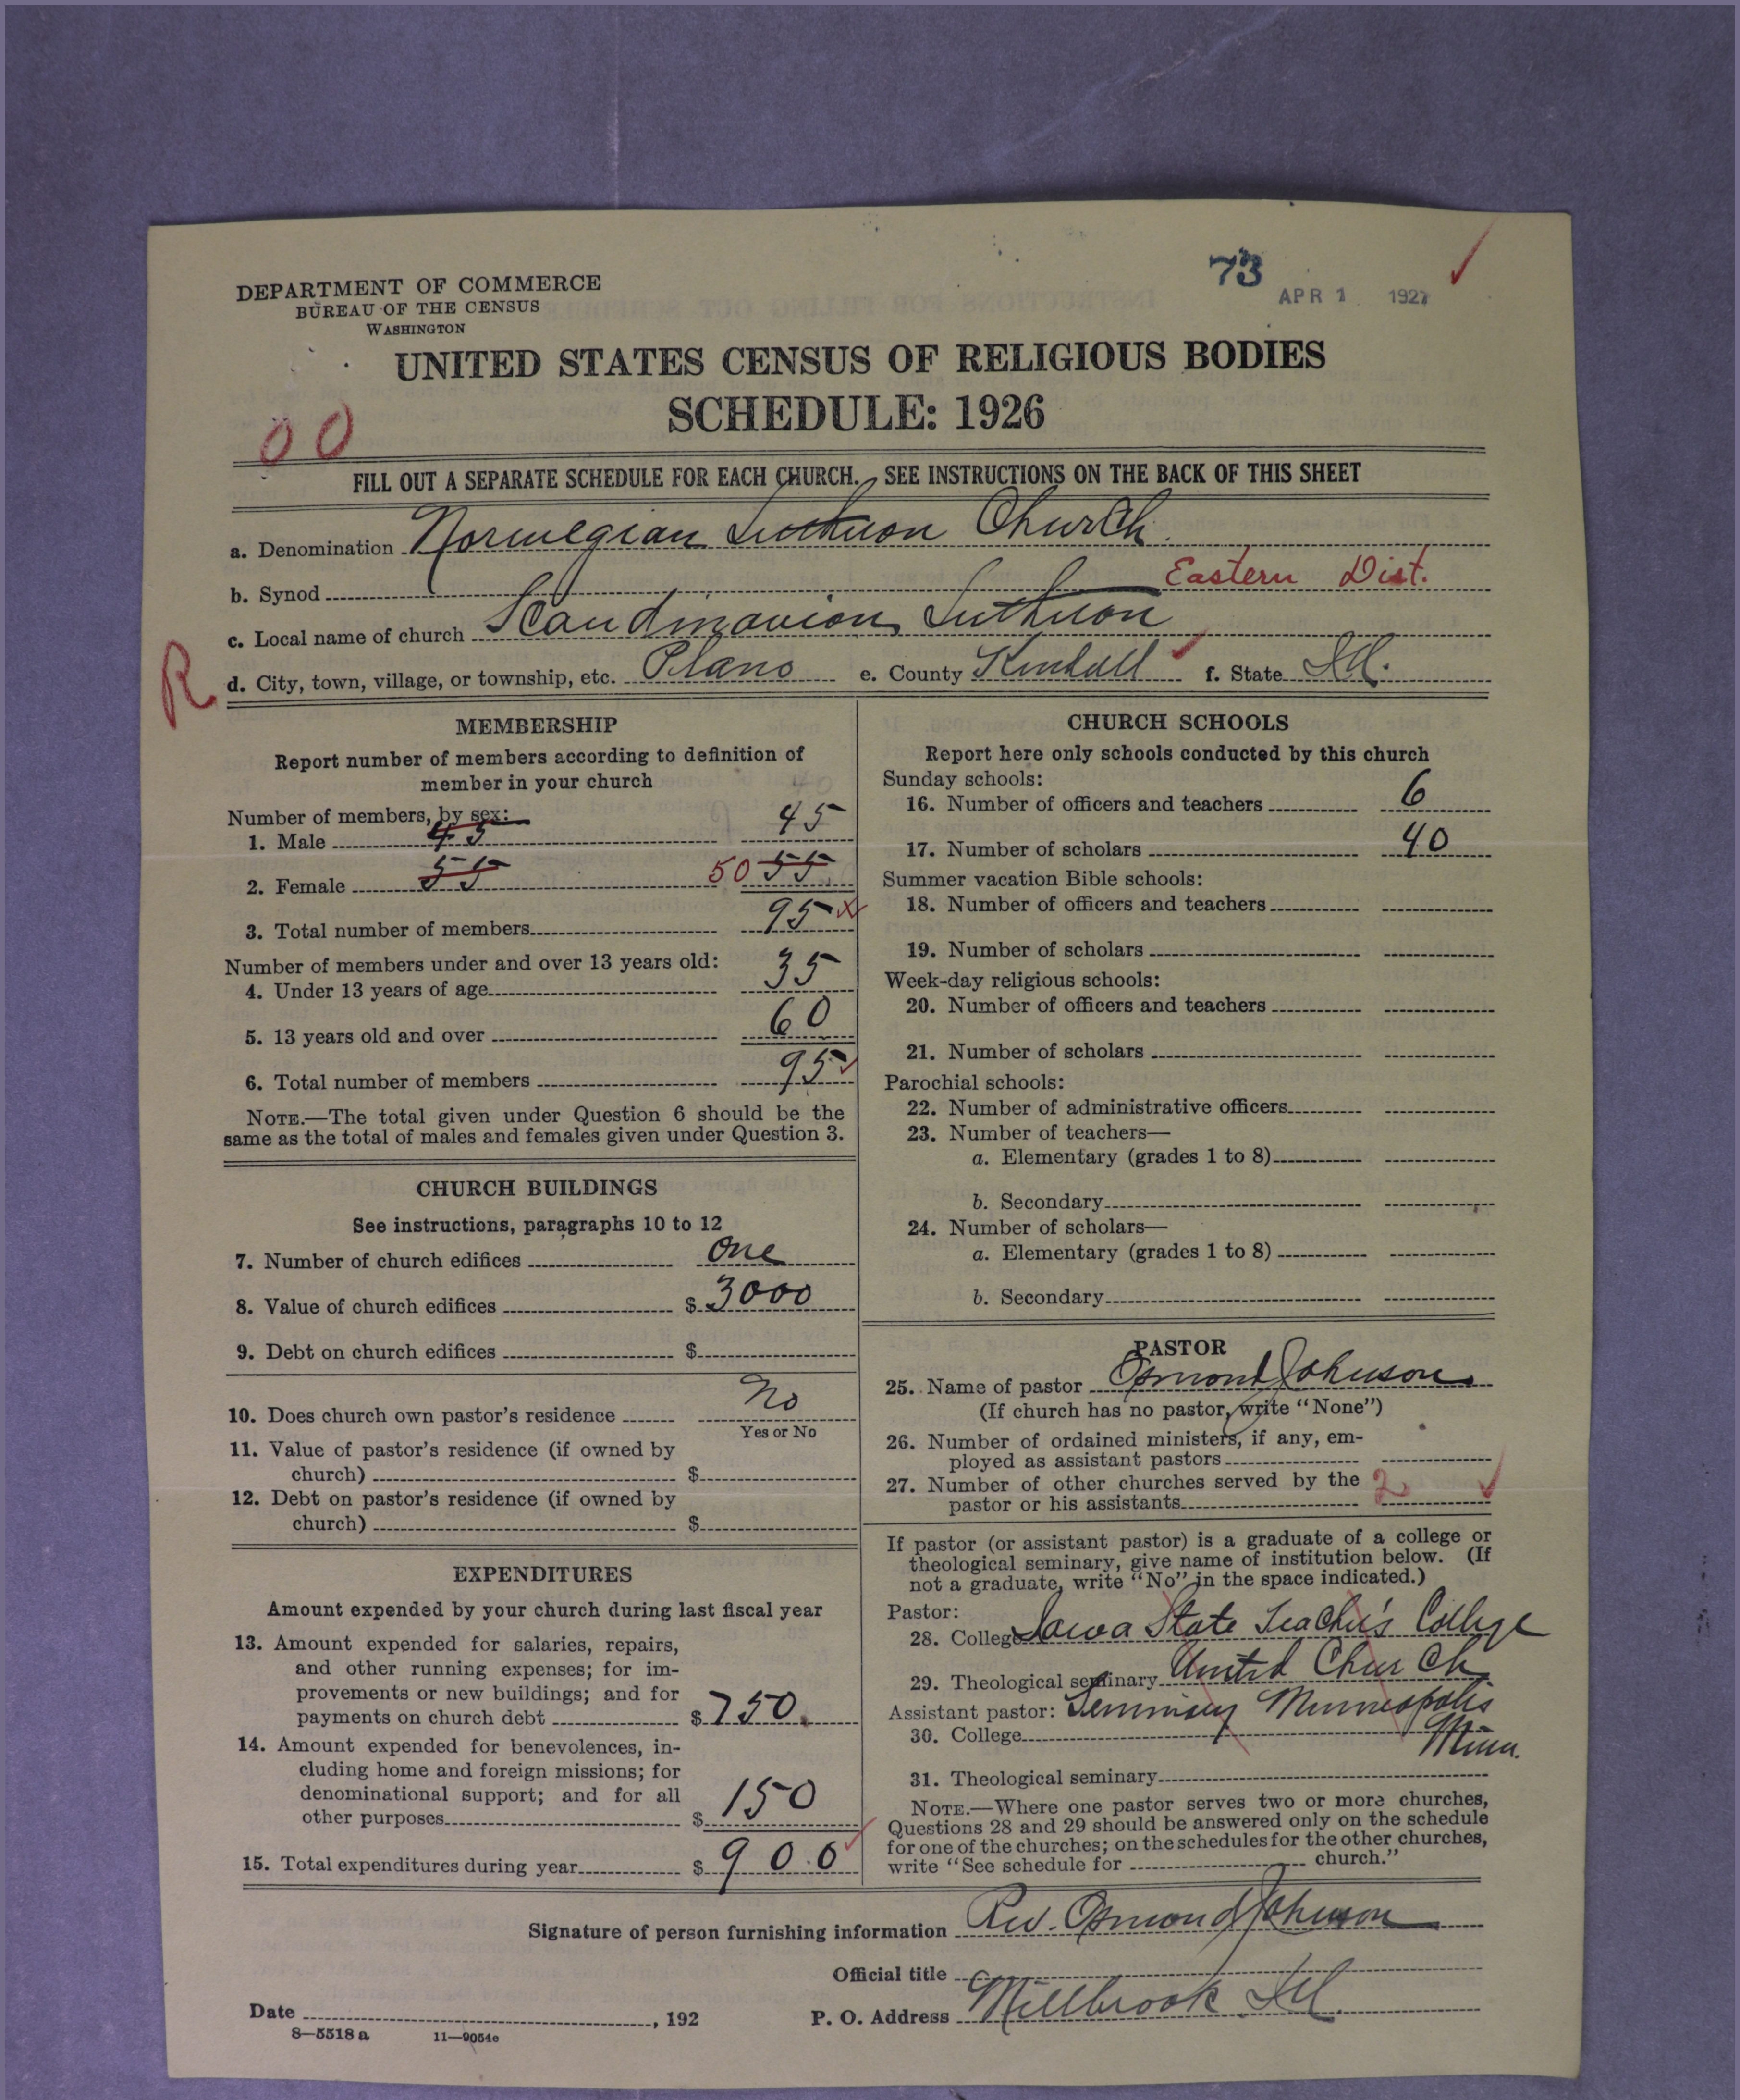 73
APR 1 1927
DEPARTMENT OF COMMERCE
BUREAU OF THE CENSUS
WASHINGTON
UNITED STATES CENSUS OF RELIGIOUS BODIES
SCHEDULE: 1926
00
FILL OUT A SEPARATE SCHEDULE FOR EACH CHURCH. SEE INSTRUCTIONS ON THE BACK OF THIS SHEET
a. Denomination Norwegian Lutheran Church.
b. Synod Eastern Dist.
c. Local name of church Scandinavian Lutheran
R
d. City, town, village, or township, etc. Plano e. County Kendall f. State Ill.
MEMBERSHIP
Report number of members according to definition of
member in your church
Number of members, by sex:
1. Male 45 45
2. Female 55 50 55
3. Total number of members 95
Number of members under and over 13 years old:
4. Under 13 years of age 35
5. 13 years old and over 60
6. Total number of members 95
NOTE.—The total given under Question 6 should be the
same as the total of males and females given under Question 3.
CHURCH BUILDINGS
See instructions, paragraphs 10 to 12
7. Number of church edifices one
8. Value of church edifices $ 3000
9. Debt on church edifices $
10. Does church own pastor's residence No
Yes or No
11. Value of pastor's residence (if owned by
church) $
12. Debt on pastor's residence (if owned by
church) $
EXPENDITURES
Amount expended by your church during last fiscal year
13. Amount expended for salaries, repairs,
and other running expenses; for im-
provements or new buildings; and for
payments on church debt $ 750.
14. Amount expended for benevolences, in-
cluding home and foreign missions; for
denominational support; and for all
other purposes $ 150
15. Total expenditures during year $ 900
CHURCH SCHOOLS
Report here only schools conducted by this church
Sunday schools:
16. Number of officers and teachers 6
17. Number of scholars 40
Summer vacation Bible schools:
18. Number of officers and teachers
19. Number of scholars
Week-day religious schools:
20. Number of officers and teachers
21. Number of scholars
Parochial schools:
22. Number of administrative officers
23. Number of teachers—
a. Elementary (grades 1 to 8)
b. Secondary
24. Number of scholars—
a. Elementary (grades 1 to 8)
b. Secondary
PASTOR
25. Name of pastor Osmond Johnson
(If church has no pastor, write "None")
26. Number of ordained ministers, if any, em-
ployed as assistant pastors
27. Number of other churches served by the
pastor or his assistants 2
If pastor (or assistant pastor) is a graduate of a college or
theological seminary, give name of institution below. (If
not a graduate, write "No" in the space indicated.)
Pastor:
28. College Iowa State Teacher's College
29. Theological seminary United Church
Assistant pastor: Seminary Minneapolis
30. College Minn.
31. Theological seminary
NOTE.—Where one pastor serves two or more churches,
Questions 28 and 29 should be answered only on the schedule
for one of the churches; on the schedules for the other churches,
write "See schedule for church."
Signature of person furnishing information Rev. Osmond Johnson
Official title
Date , 192 P. O. Address Millbrook Ill.
8—5518 a 11—9054e